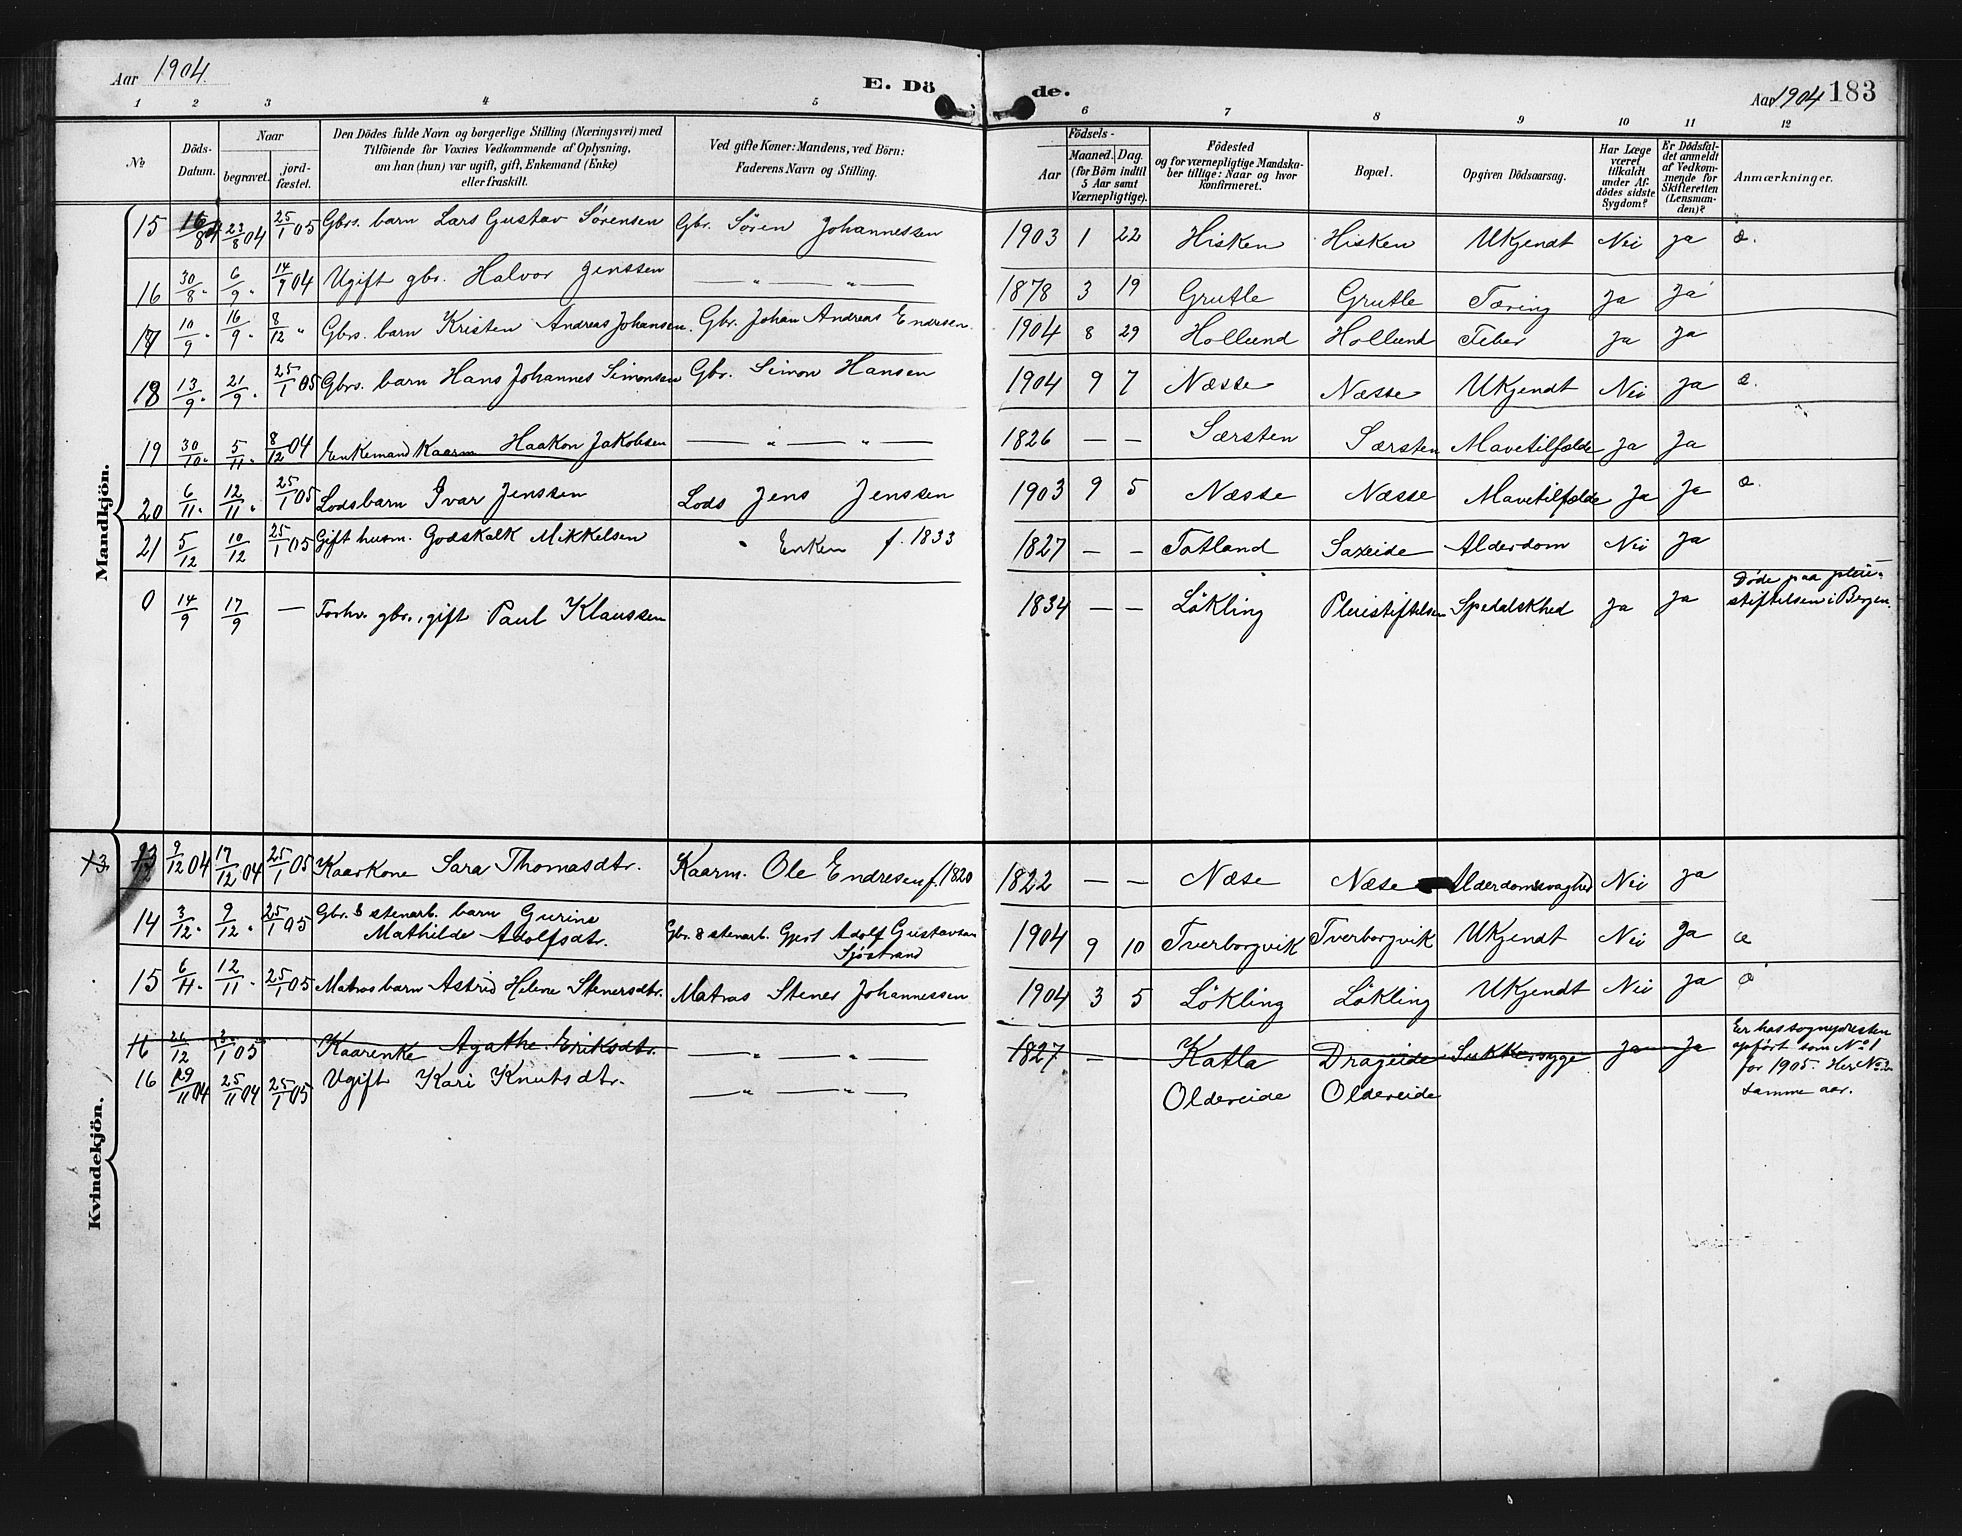 Aar 1904.
E. Dö
de.
Aar 1904 183
1 2 3 4 5 6 7 8 9 10 11 12
No
Döds-Datum.
Naar
begravet.
jord-fæstet.
Den Dödes fulde Navn og borgerlige Stilling (Næringsvei) med
Tilföiende for Voxnes Vedkommende af Oplysning,
om han (hun) var ugift, gift, Enkemand (Enke)
eller fraskilt.
Ved gifte Koner: Mandens, ved Börn:
Faderens Navn og Stilling.
Födsels-
Aar
Maaned. Dag.
(for Börn indtil
5 Aar samt
Værnepligtige).
Födested
og for værnepligtige Mandska-
ber tillige: Naar og hvor
konfirmeret.
Bopæl.
Opgiven Dödsaarsag.
Har Læge
været
tilkaldt
under Af-
dödes sidste
Sygdom?
Er Dödsfal-
det anmeldt
af Vedkom-
mende for
Skifteretten
(Lensman-
den)?
Anmærkninger.
Mandkjön.
15 16/8 04 23/8 04 25/1 05 Gbrs. barn Lars Gustav Sørensen Gbr. Søren Johannessen 1903 1 22 Hisken Hisken Ukjendt Nei ja æ.
16 30/8 " 6/9 " 14/9 04 Ugift gbr. Halvor Jenssen — " — " — 1878 3 19 Grutle Grutle Tæring ja ja
17 10/9 " 16/9 " 8/12 " Gbrs. barn Kristen Andreas Johansen. Gbr. Johan Andreas Endresen. 1904 8 29 Hollund Hollund Feber ja ja
18 13/9 " 21/9 " 25/1 05 Gbrs. barn Hans Johannes Simonsen Gbr. Simon Hansen 1904 9 7 Næsse Næsse Ukjendt Nei ja æ.
19 30/10 " 5/11 " 8/12 04 Enkemand Kaarm. Haakon Jakobsen — " — " — 1826 — — Særsten Særsten Mavetilfælde ja ja
20 6/11 " 12/11 " 25/1 05 Lodsbarn Ivar Jenssen Lods Jens Jenssen 1903 9 5 Næsse Næsse Mavetilfælde ja ja æ.
21 5/12 10/12 25/1 05 Gift husm. Godskalk Mikkelsen " Enken f. 1833 1827 — — Totland Saxeide Alderdom Nei ja
0 14/9 17/9 — Forhv. gbr., gift Paul Klaussen 1834 — — Løkling Pleiestiftelsen Spedalskhed ja ja Døde paa pleie-
stiftelsen i Bergen.
Kvindekjön.
13. 13 9/12 04 17/12 04 25/1 05 Kaarkone Sara Thomasdtr. Kaarm. Ole Endresen f. 1820 1822 — — Næse Næse Alderdomssvaghed Nei ja
14 3/12 " 9/12 " 25/1 05 Gbr. & stenarb. barn Gurine
Mathilde Adolfsdtr. Gbr. & stenarb. Gjert Adolf Gustavsen
Sjøstrand 1904 9 10 Tverborgvik Tverborgvik Ukjendt Nei ja æ
15 6/11 " 12/11 " 25/1 05 Matrosbarn Astrid Helene Stenersdtr. Matros Stener Johannessen 1904 3 5 Løkling Løkling Ukjendt Nei ja æ
16 26/12 3/1 05 Kaarenke Agathe Eriksdtr. — " — " — 1827 — — Katla Drageide Sukkersyge ja ja Er hos sognepresten
opført som No 1
for 1905. Her No 2
samme aar.
16 19/11 04 25/11 04 25/1 05 Ugift Kari Knutsdtr. — " — " — Oldereide Oldereide